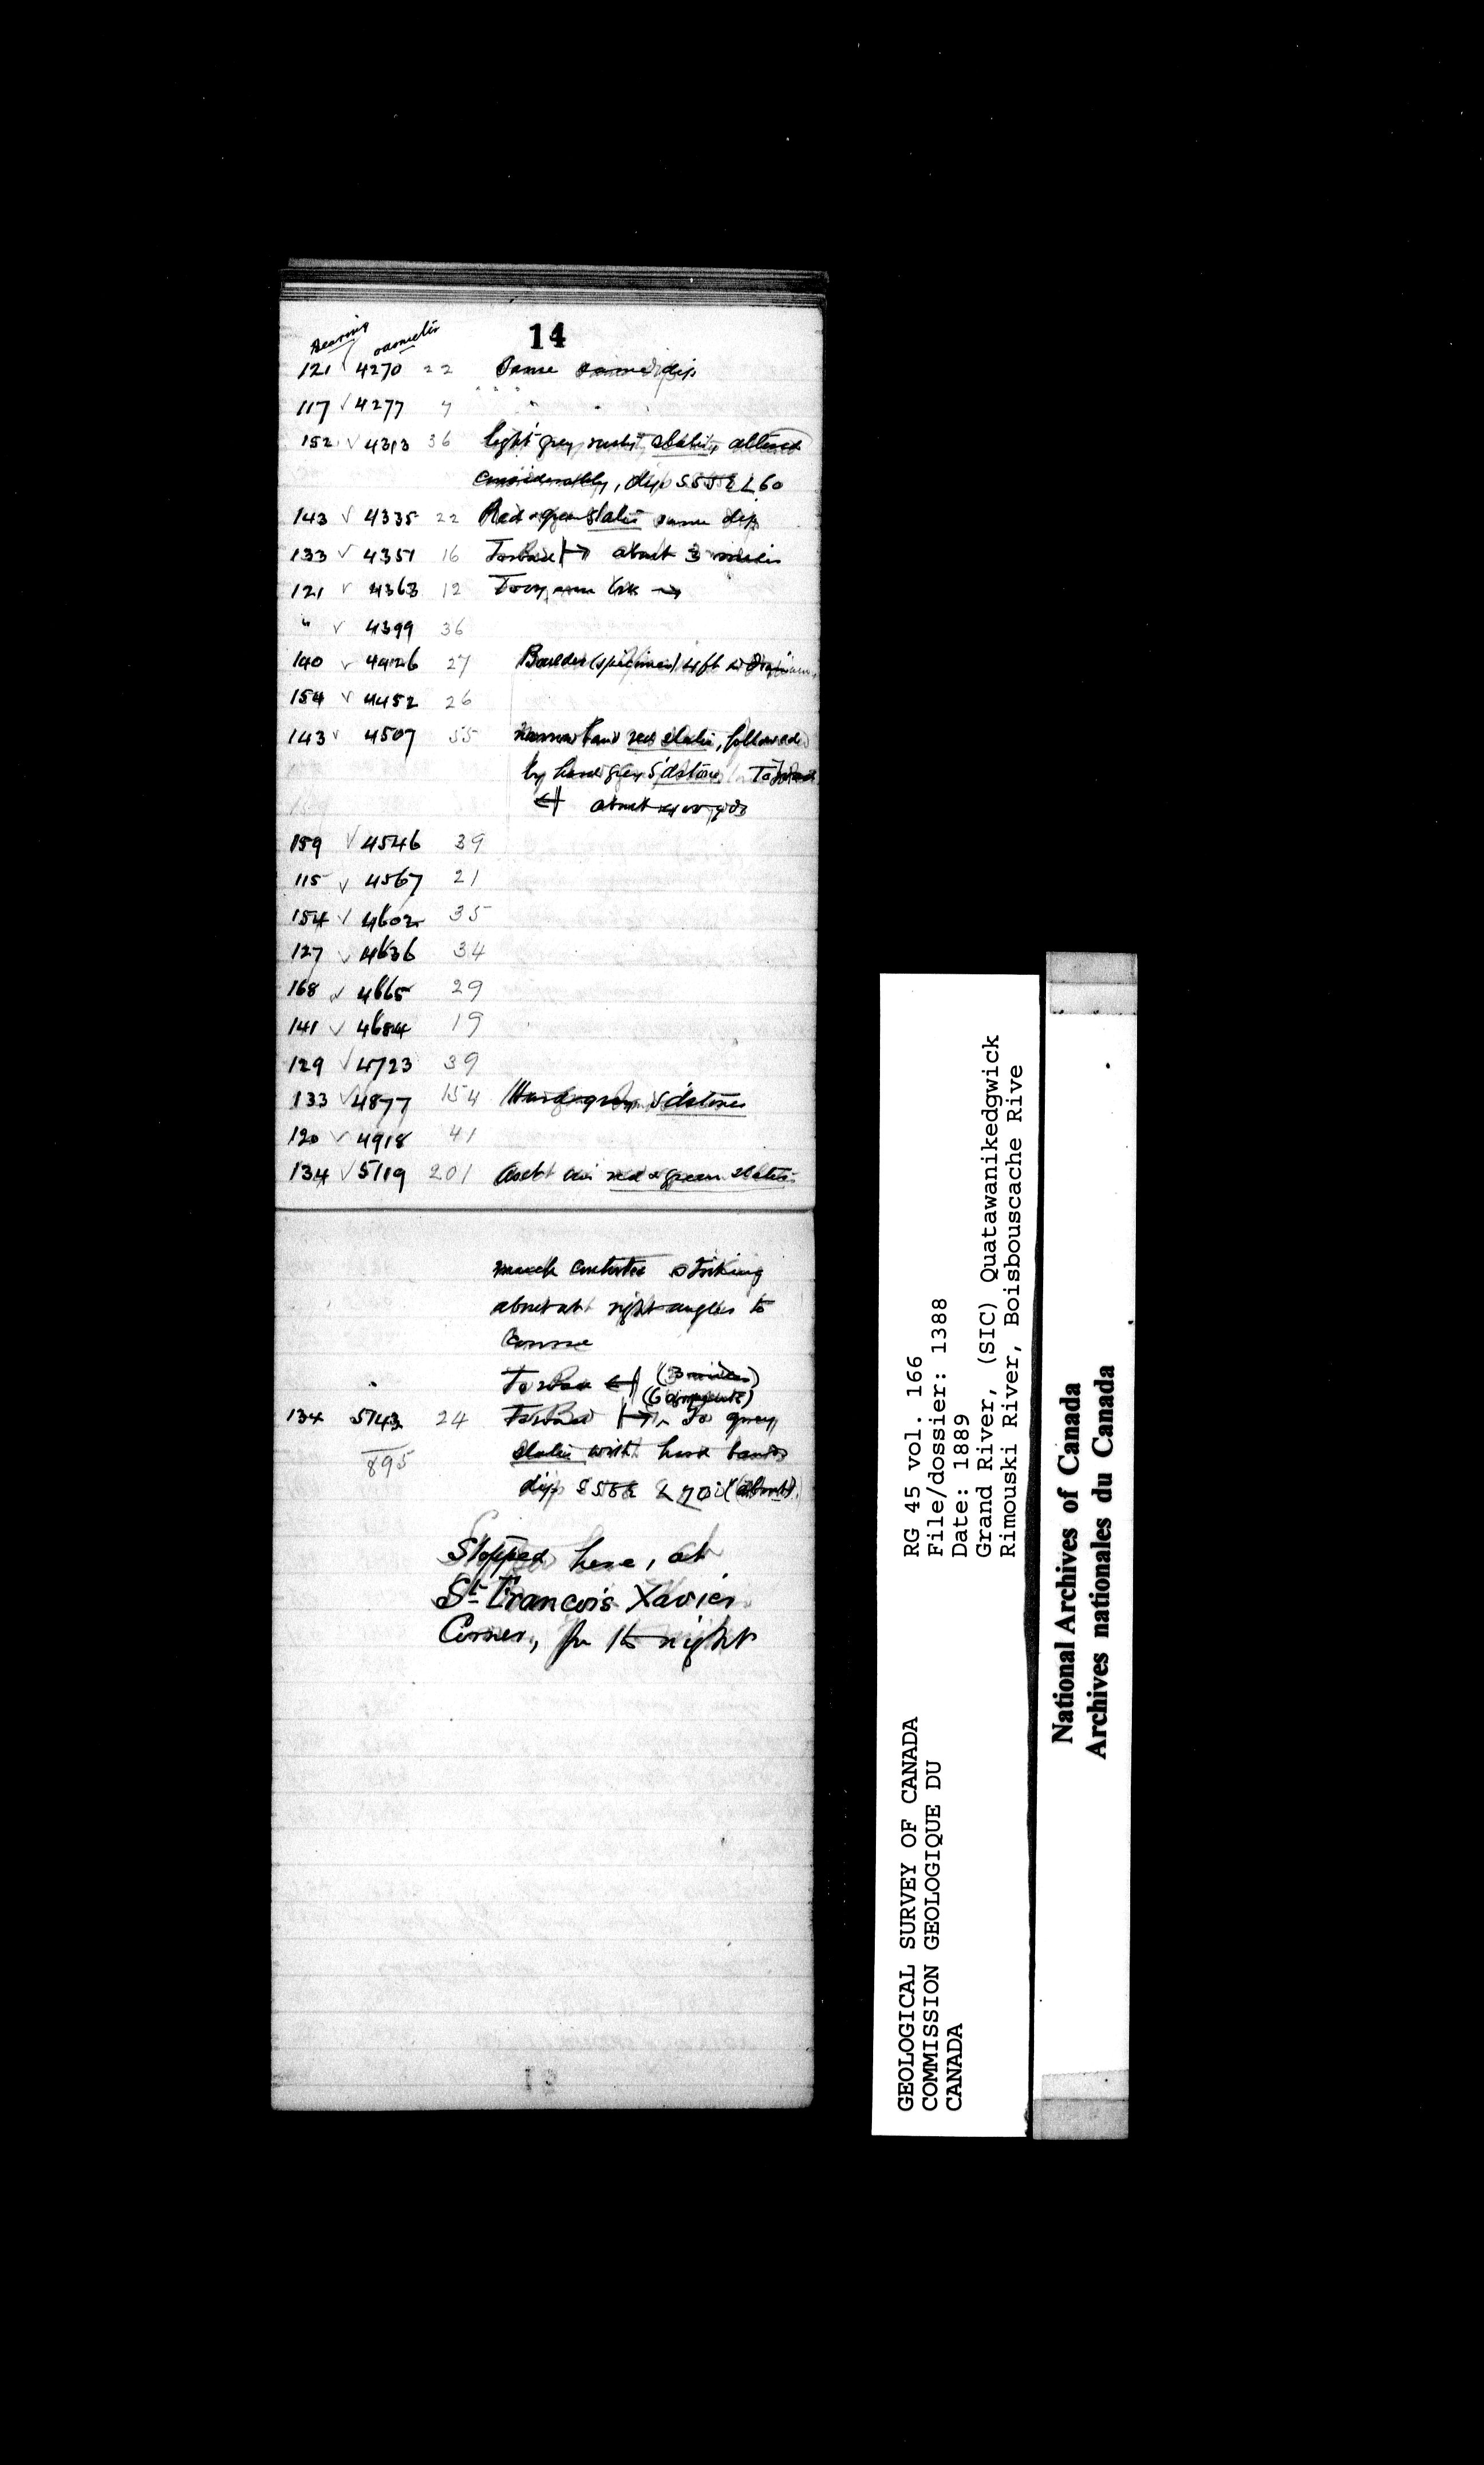 Bearing odometer 14
121 4270 22 Same same dip
117 √ 4277 7 " "
152 √ 4313 36 light grey rusty slates, altered
considerably, dip SSE ∠ 60
143 √ 4335 22 Red & green slates same dip
133 √ 4351 16 To Road |→ about 3 miles
121 √ 4363 12 →
" √ 4399 36
140 √ 4426 27 Boulder (specimen) 4 ft in diam
154 √ 4452 26
143 √ 4507 55 narrow band red slates, followed
by hard grey s'dstone To Road
←| about 400 yds
159 √ 4546 39
115 √ 4567 21
154 √ 4602 35
127 √ 4636 34
168 √ 4665 29
141 √ 4684 19
129 √ 4723 39
133 √ 4877 154 Hard grey s'dstones
120 √ 4918 41
134 √ 5119 201 red & green slates
much contorted striking
about at right angles to
course
To Road ←| (3 miles)
(6 )
134 5143 24 To Road |→, To grey
895 slates with hard bands
dip SSE ∠ 70 (about)
Stopped here, at
St Francois Xavier
Corner, for the night
GEOLOGICAL SURVEY OF CANADA
COMMISSION GEOLOGIQUE DU
CANADA
RG 45 vol. 166
File/dossier: 1388
Date: 1889
Grand River, (SIC) Quatawanikedgwick
Rimouski River, Boisbouscache Rive
National Archives of Canada
Archives nationales du Canada